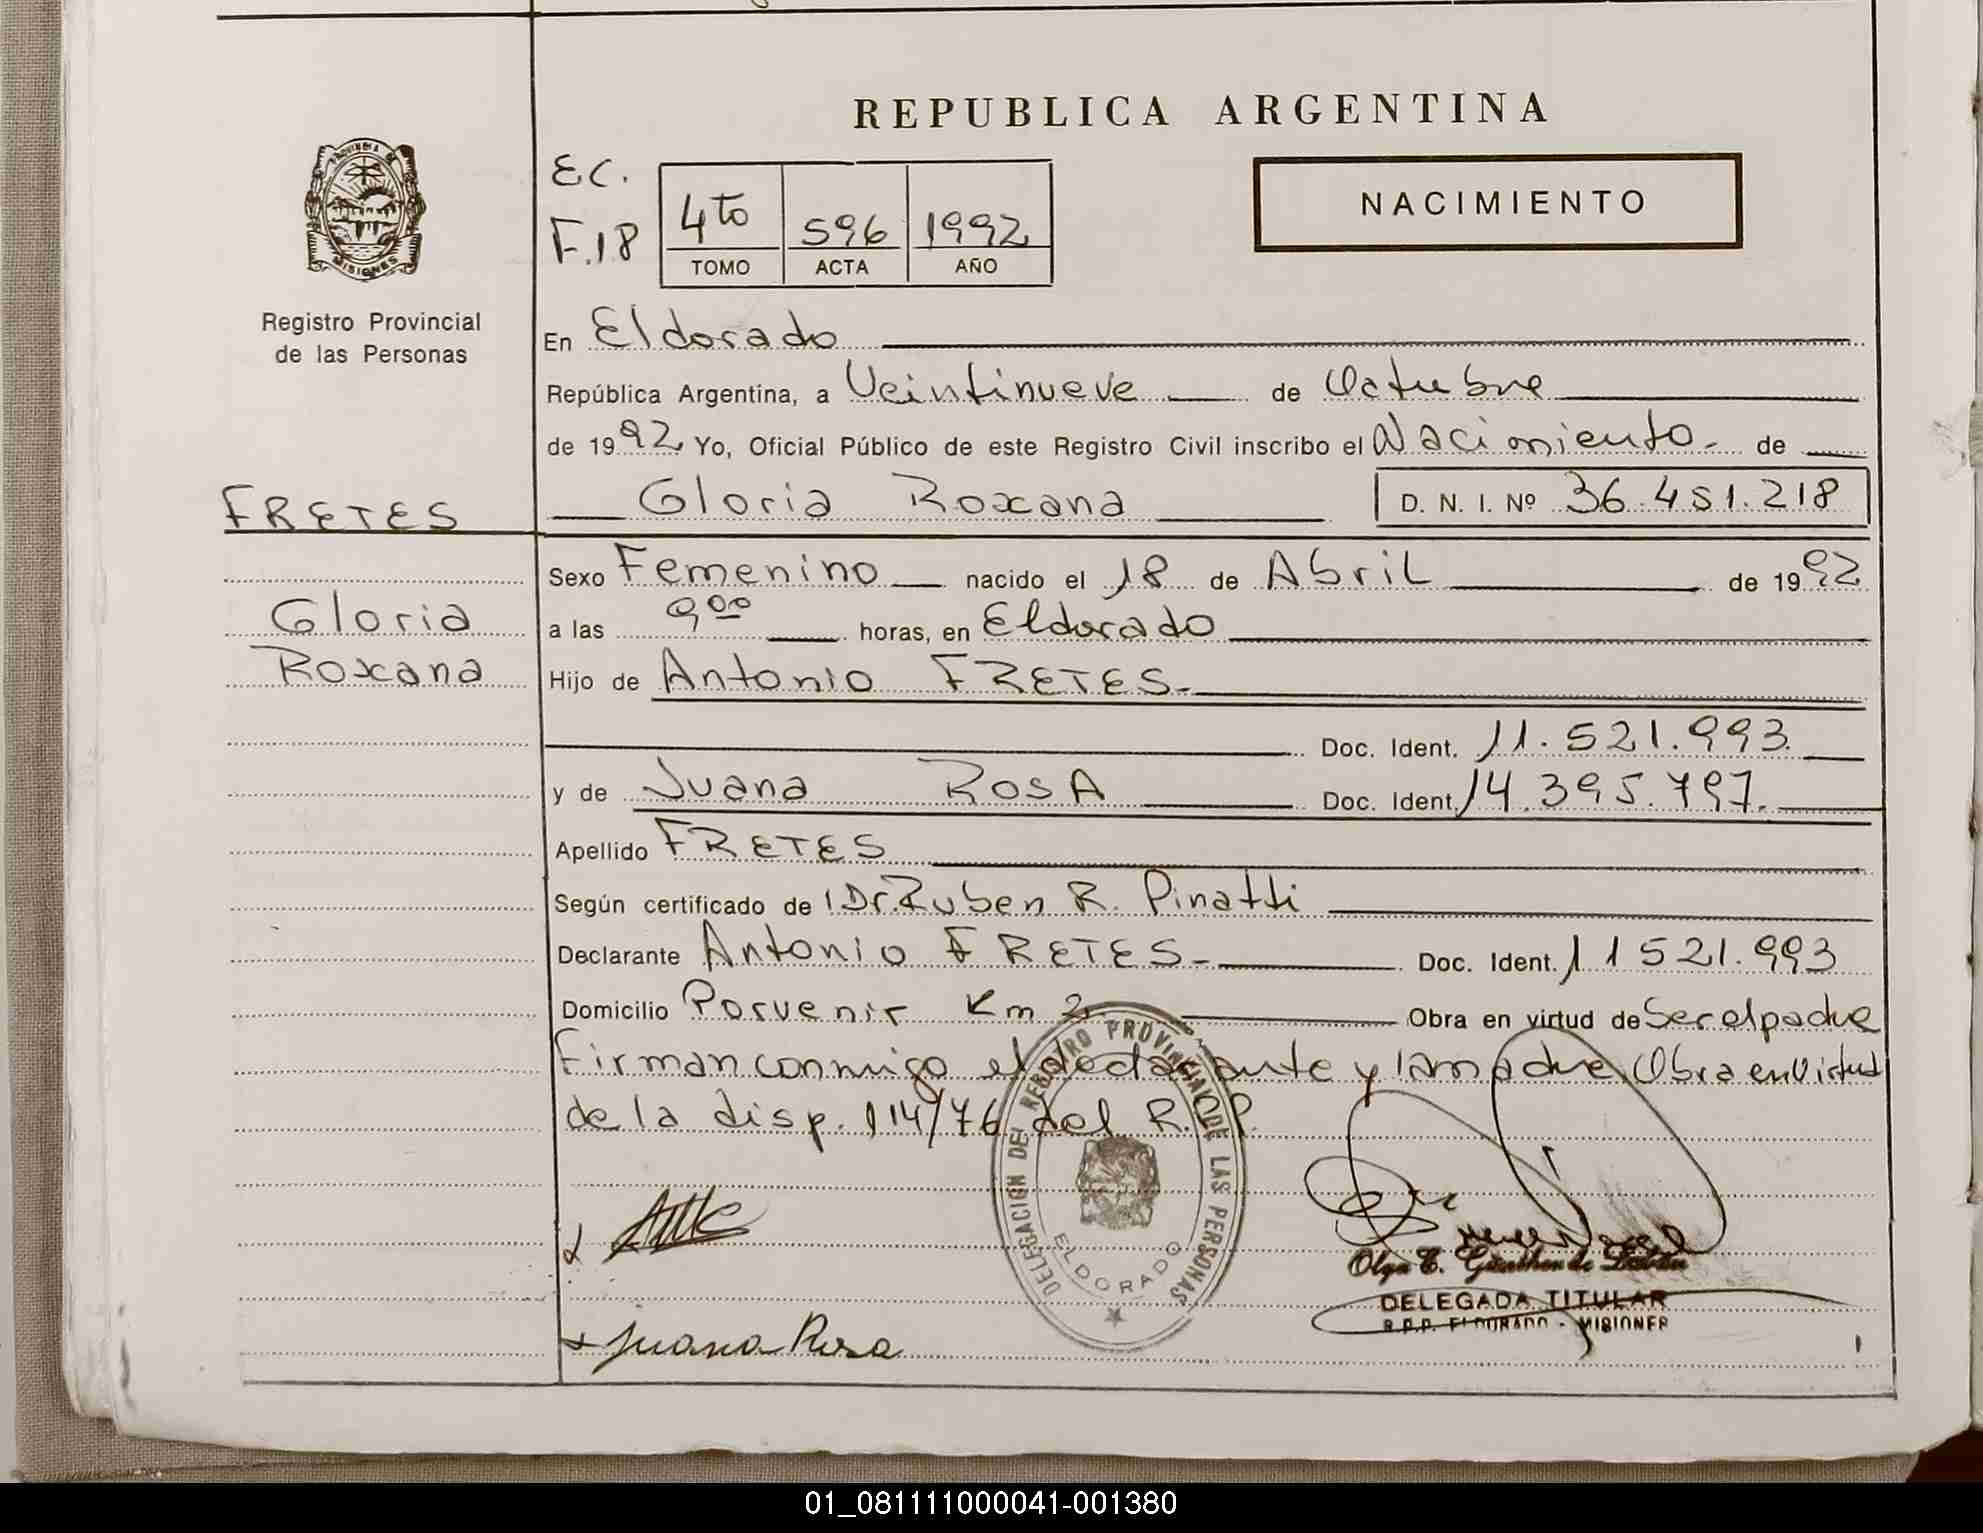 REPUBLICA ARGENTINA
PROVINCIA DE
MISIONES
Registro Provincial
de las Personas
E.C.
F.18
4to 596 1992
TOMO ACTA AÑO
NACIMIENTO
En Eldorado
República Argentina, a Veintinueve de Octubre
de 1992 Yo, Oficial Público de este Registro Civil inscribo el Nacimiento.- de
Gloria Roxana D. N. I. Nº 36.451.218
FRETES
Gloria
Roxana
Sexo Femenino nacido el 18 de Abril de 1992
a las 9 00 horas, en Eldorado
Hijo de Antonio FRETES.-
Doc. Ident. 11.521.993.
y de Juana ROSA Doc. Ident. 14.395.797.
Apellido FRETES
Según certificado de Dr. Ruben R. Pinatti
Declarante Antonio FRETES- Doc. Ident. 11521.993
Domicilio Porvenir Km 2 Obra en virtud de Ser el padre
Firman conmigo el declarante y la madre, Obra en Virtud
de la disp. 114/76 del R.P.P.
DELEGACION DEL REGISTRO PROVINCIAL DE LAS PERSONAS
ELDORADO
Olga
DELEGADA TITULAR
R.P.P. ELDORADO - MISIONES
Juana Rosa
01_081111000041-001380